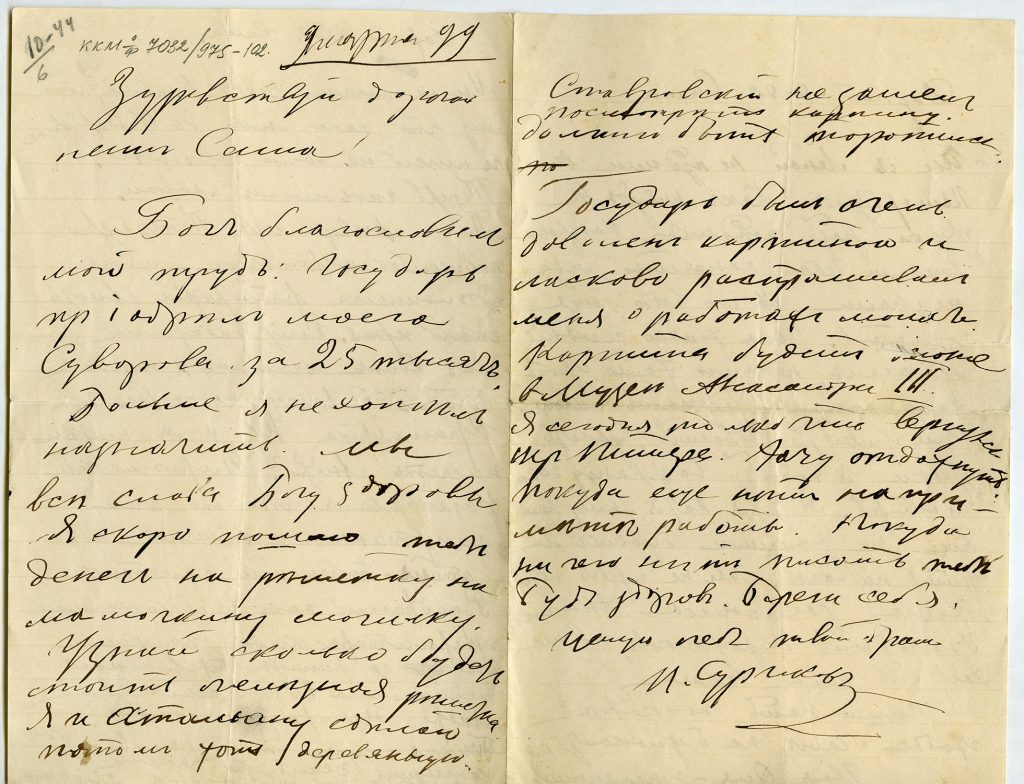 10-44
6
ККМ оф 7032/975-102
9 марта 99
Здравствуй дорогой
наш Саша!
Богъ благословилъ
мой трудъ: Государь
пріобрѣлъ моего
Суворова за 25 тысячъ.
Больше я не хотѣлъ
назначить. Мы
всѣ слава Богу здоровы
Я скоро пошлю тебѣ
денегъ на рѣшетку на
мамочкину могилку.
Узнай сколько будетъ
стоить чугунная рѣшетка
я и
потомъ хоть деревянную.
Ставровскій не заметилъ
посмотрѣть картину.
должно быть торопился.
Государь былъ очень
доволенъ картиной и
ласково разспрашивалъ
меня о работахъ моихъ.
Картина будетъ
въ Музеѣ Александра III.
Я сегодня только что вернулся
изъ Питера. Хочу отдохнуть.
Покуда еще нѣтъ на при-
мѣтѣ работы. Покуда
ничего нѣтъ писать тебѣ
Будь здоровъ. Береги себя.
Цѣлую тебя твой братъ
И. Суриковъ